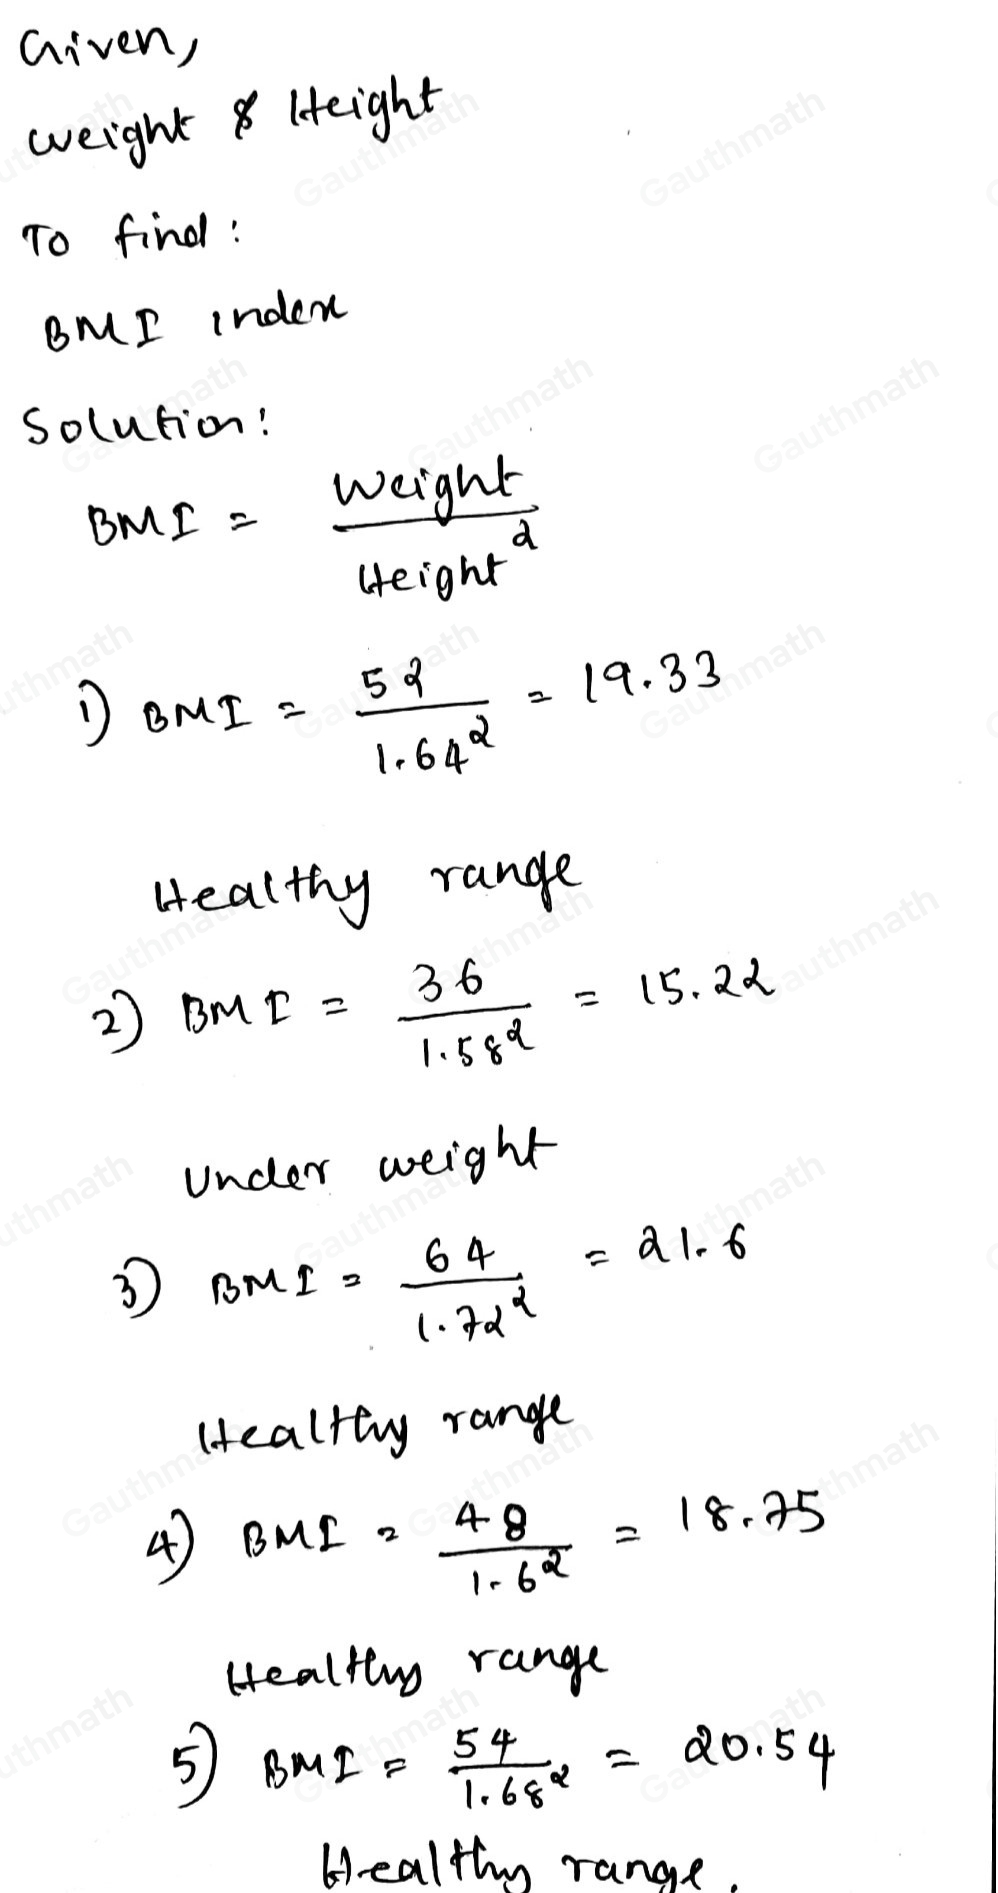 Given,
weight & Height
To find:
BMI index
Solution:
BMI = Weight / Height²
1) BMI = 52 / 1.64² = 19.33
Healthy range
2) BMI = 36 / 1.58² = 15.22
Under weight
3) BMI = 64 / 1.72² = 21.6
Healthy range
4) BMI = 48 / 1.6² = 18.75
Healthy range
5) BMI = 54 / 1.68² = 20.54
Healthy range.